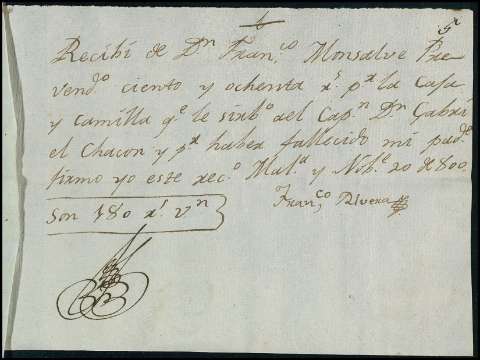 Recibi de Dn Franco Monsalve Pre
vendo ciento y ochenta rs pr la Caja
y camilla qe le sirbo del Capn Dn Gabri
el Chacon y pr haber fallecido mi padre
firmo yo este reco Mala y Nobe 20 de 800
Son 180 rs vn
Franco Rivera